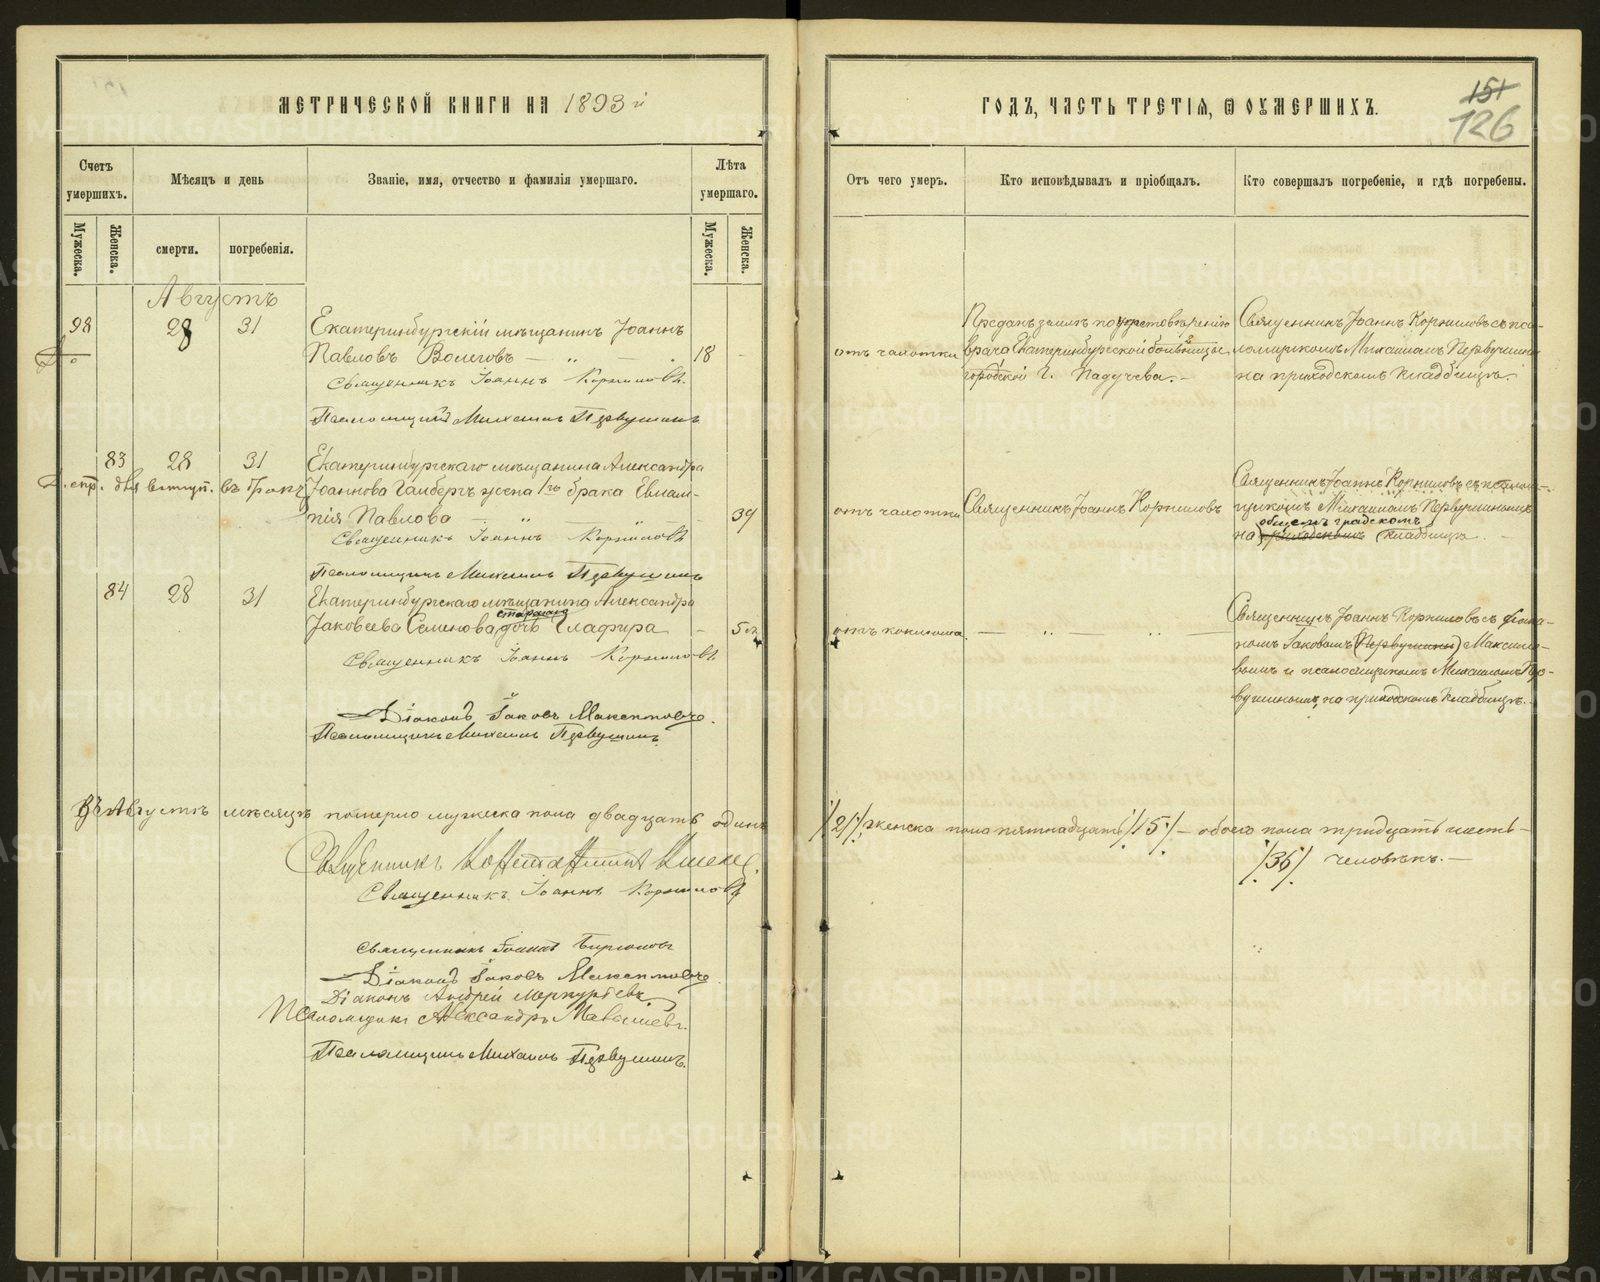 МЕТРИЧЕСКОЙ КНИГИ НА 1893 й
ГОДЪ, ЧАСТЬ ТРЕТІЯ, Ѿ ОУМЕРШИХЪ.
151
126
Счетъ умершихъ.
Мѣсяцъ и день
Званіе, имя, отчество и фамилія умершаго.
Лѣта умершаго.
Отъ чего умеръ.
Кто исповѣдывалъ и пріобщалъ.
Кто совершалъ погребеніе, и гдѣ погребены.
Мужеска.
Женска.
смерти.
погребенія.
Мужеска.
Женска.
Августъ
98
28
31
Екатеринбургскій мѣщанинъ Іоаннъ
Павловъ Волеговъ
18
Священникъ Іоаннъ Корниловъ.
Псаломщикъ Михаилъ Первушинъ
отъ чахотки
Преданъ землѣ по удостовѣренію
врача Екатеринбургской больницы
городской Г. Падучева.
Священникъ Іоаннъ Корниловъ съ пса-
ломщикомъ Михаиломъ Первушинымъ
на приходскомъ кладбищѣ.
83
28
31
Екатеринбургскаго мѣщанина Александра
Іоаннова жена 1го брака Евлам-
пія Павлова
39
для вступ. въ бракъ
Священникъ Іоаннъ Корниловъ
Псаломщикъ Михаилъ Первушинъ
отъ чахотки
Священникъ Іоаннъ Корниловъ
Священникъ Іоаннъ Корниловъ съ псалом-
щикомъ Михаиломъ Первушинымъ
общемъ градскомъ
на приходскомъ кладбищѣ
84
28
31
Екатеринбургскаго мѣщанина Александра
Іаковлева Семенова дочь Глафира
5 м
Священникъ Іоаннъ Корниловъ
Діаконъ Іаковъ Максимовъ.
Псаломщикъ Михаилъ Первушинъ.
отъ коклюша
Священникъ Іоаннъ Корниловъ съ діако-
номъ Іаковомъ (Первушины) Максимо-
вымъ и псаломщикомъ Михаиломъ Пер-
вушинымъ, на приходскомъ кладбищѣ.
Въ Августѣ мѣсяцѣ померло мужеска пола двадцать одинъ /21/, женска пола пятнадцать /15/ – обоего пола тридцать шесть –
/36/ человѣкъ. –
Священникъ Константинъ
Священникъ Іоаннъ Корниловъ
Священникъ Іоаннъ Бирюковъ
Діаконъ Іаковъ Максимовъ
Діаконъ Андрей Меркурьевъ
Псаломщикъ Александръ
Псаломщикъ Михаилъ Первушинъ.
METRIKI.GASO-URAL.RU